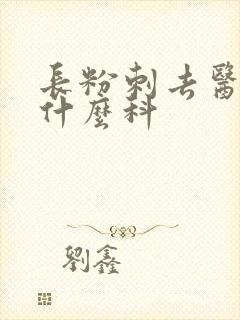 長粉刺去醫
什麼科
劉鑫